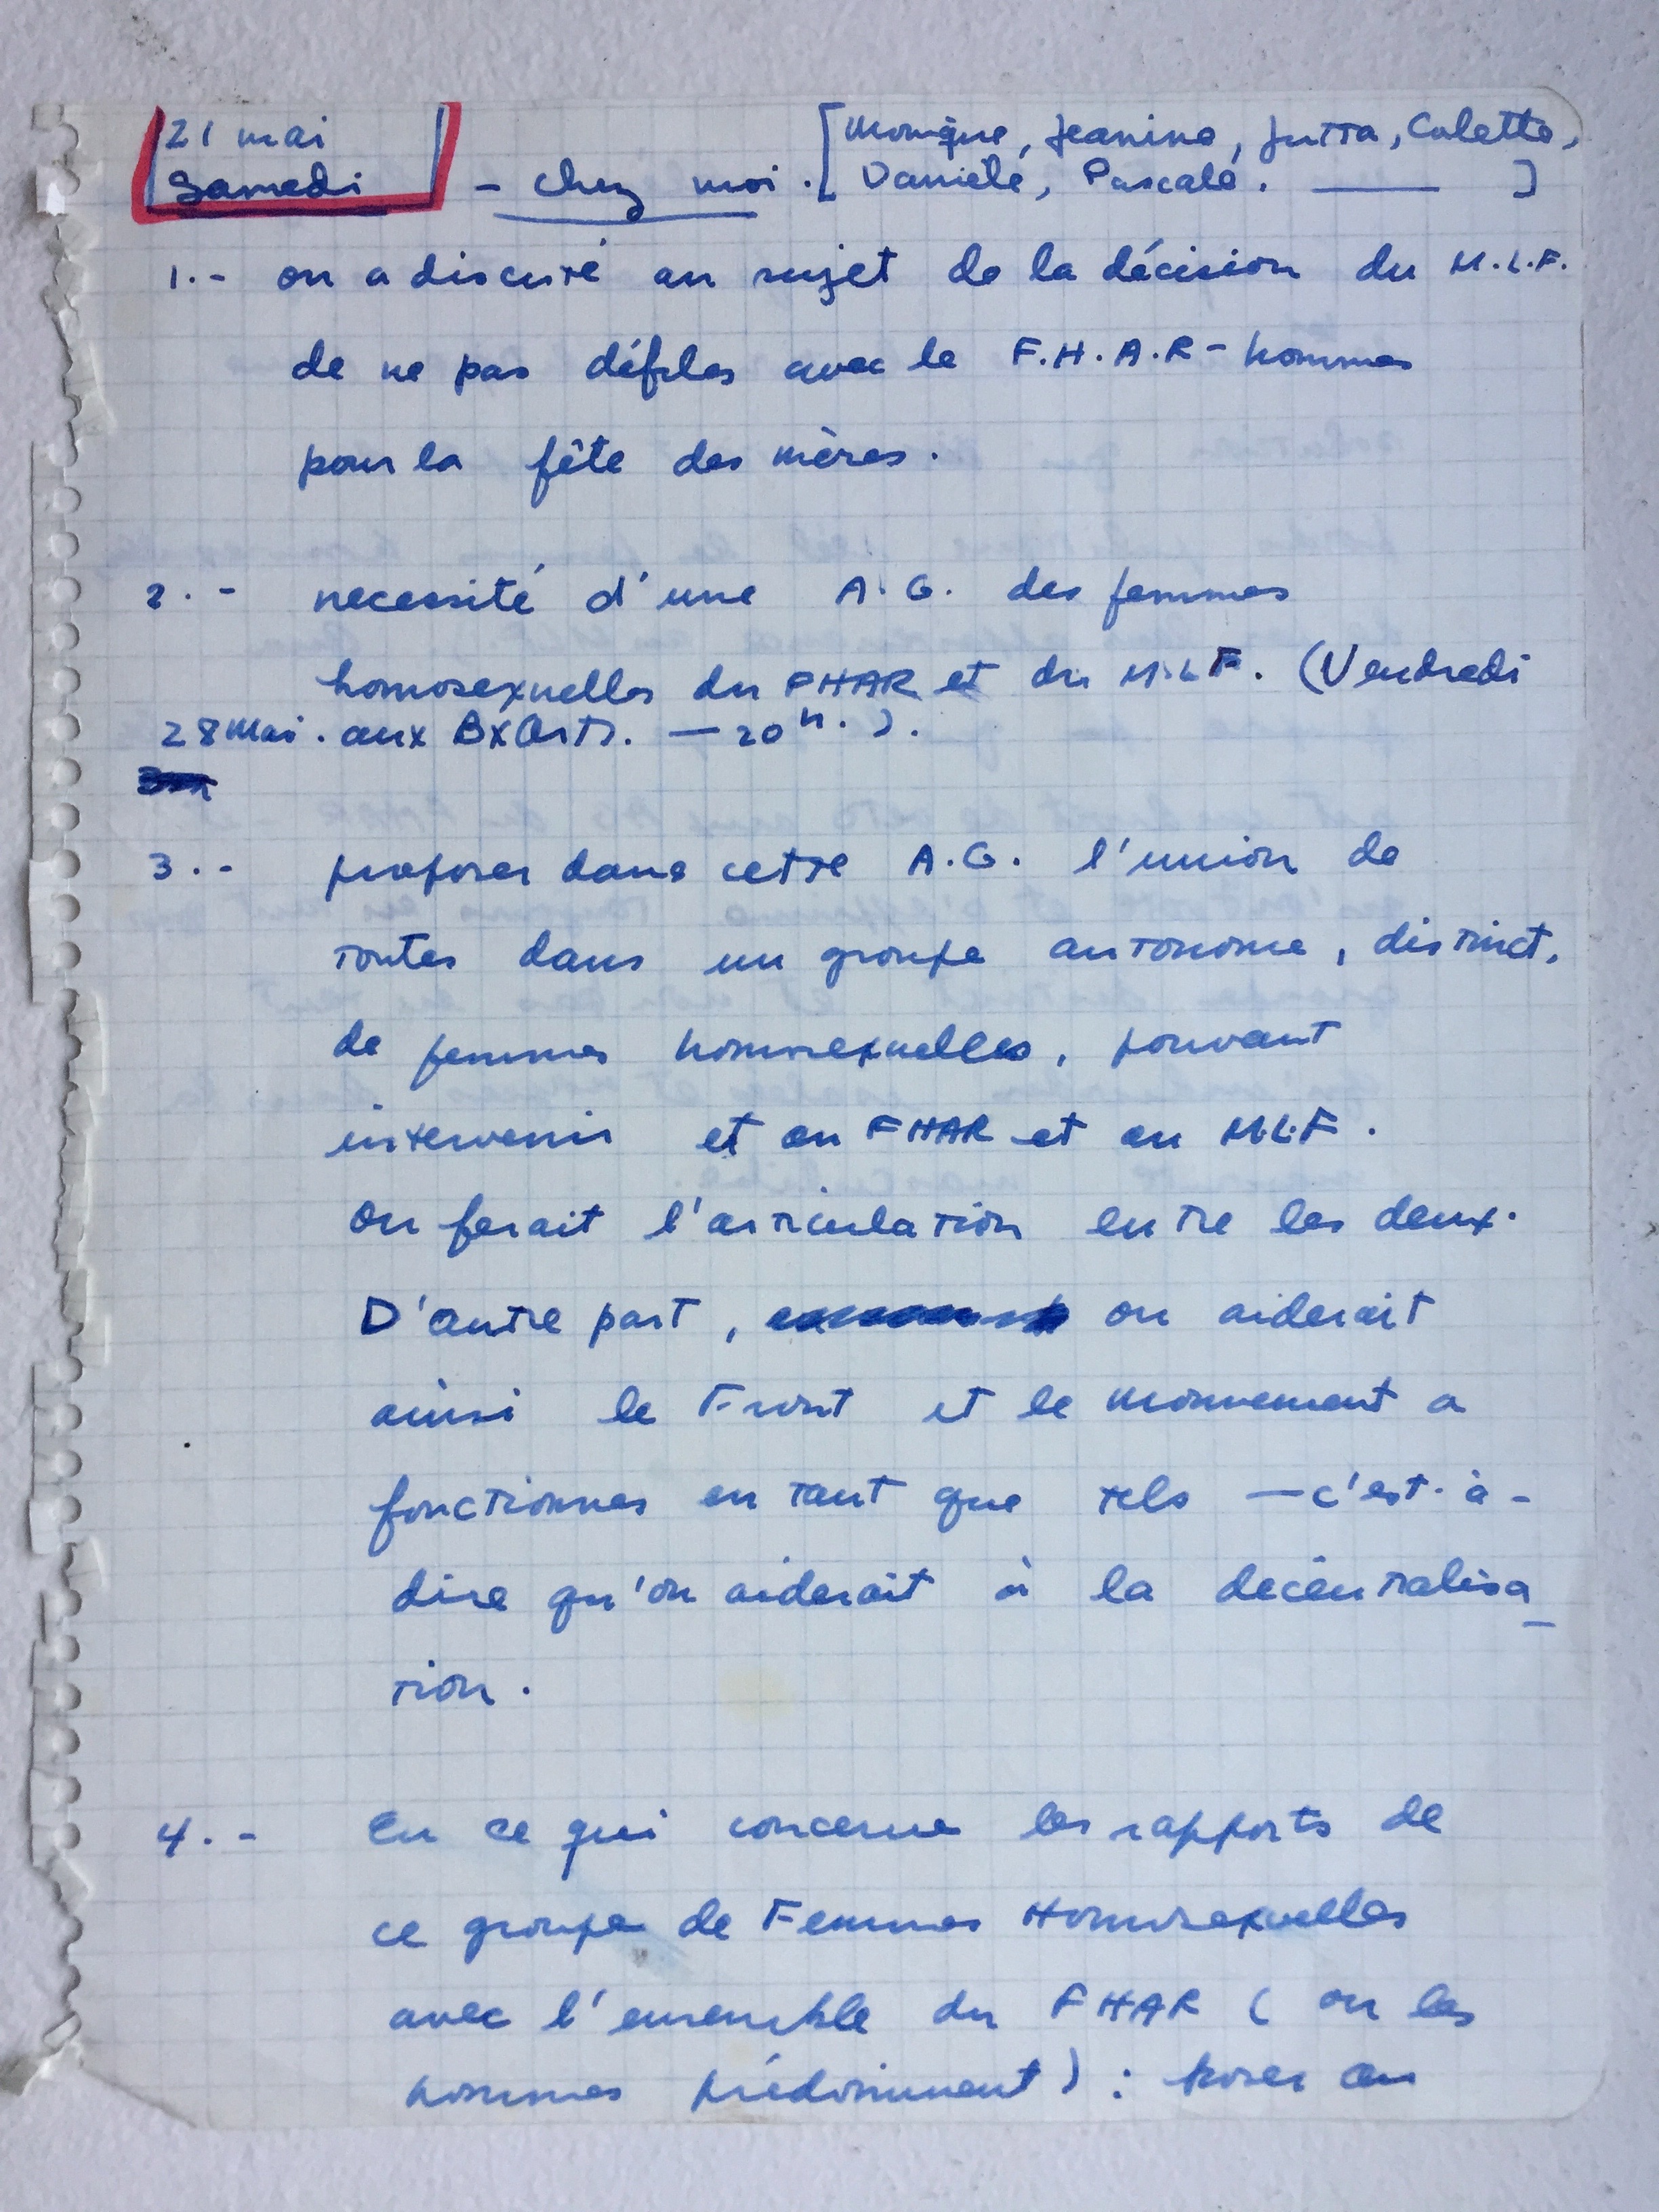 21 mai
Samedi - chez moi. [Monique, Jeanine, Jutta, Colette,
Danièle, Pascale. —— ]
1.- on a discuté au sujet de la décision du M.L.F.
de ne pas défiler avec le F.H.A.R - hommes
pour la fête des mères.
2.- necessité d'une A.G. des femmes
homosexuelles du FHAR et du M.L.F. (Vendredi
28 Mai. aux BxArts. — 20 h.).
3.- proposer dans cette A.G. l'union de
toutes dans un groupe autonome, distinct,
de femmes homosexuelles, pouvant
intervenir et au FHAR et au M.L.F.
On ferait l'articulation entre les deux.
D'autre part, on aiderait
ainsi le Front et le mouvement a
fonctionner en tant que tels — c'est-à-
dire qu'on aiderait à la décentralisa_
tion.
4.- En ce qui concerne les rapports de
ce groupe de Femmes Homosexuelles
avec l'ensemble du FHAR ( ou les
hommes prédominent) : poser au